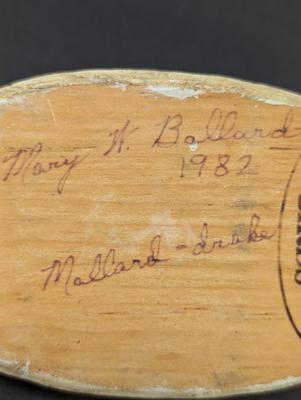 Mary W. Ballard
1982
Mallard-drake